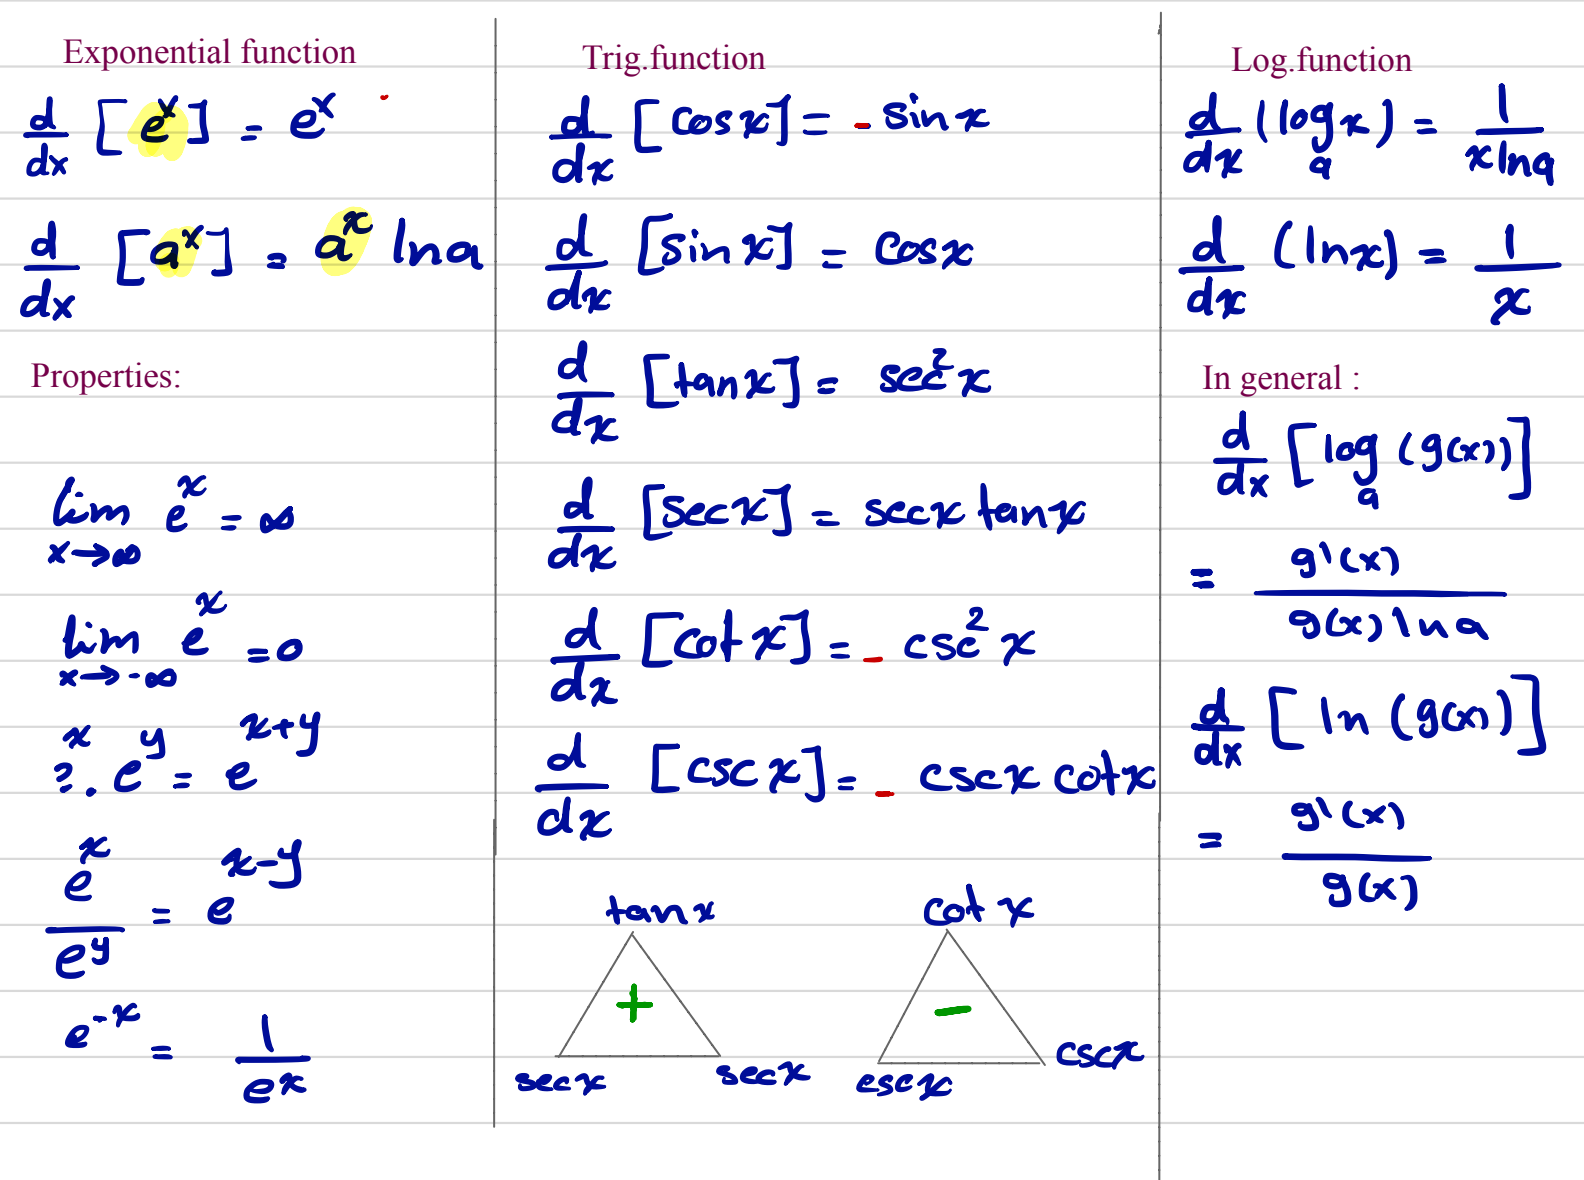 Exponential function
d/dx [e^x] = e^x
d/dx [a^x] = a^x ln a
Properties:
lim x→∞ e^x = ∞
lim x→-∞ e^x = 0
?^x . e^y = e^(x+y)
e^x / e^y = e^(x-y)
e^-x = 1 / e^x
Trig.function
d/dx [cos x] = - sin x
d/dx [sin x] = cos x
d/dx [tan x] = sec² x
d/dx [sec x] = sec x tan x
d/dx [cot x] = - csc² x
d/dx [csc x] = - csc x cot x
tan x
+
sec x
sec x
cot x
-
csc x
csc x
Log.function
d/dx (log_a x) = 1 / x ln a
d/dx (ln x) = 1 / x
In general :
d/dx [log_a (g(x))]
= g'(x) / g(x) ln a
d/dx [ln (g(x))]
= g'(x) / g(x)